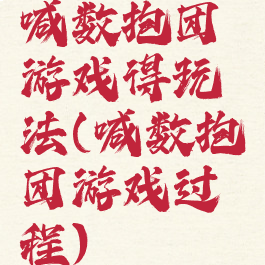 喊数抱团
游戏得玩
法(喊数抱
团游戏过
程)